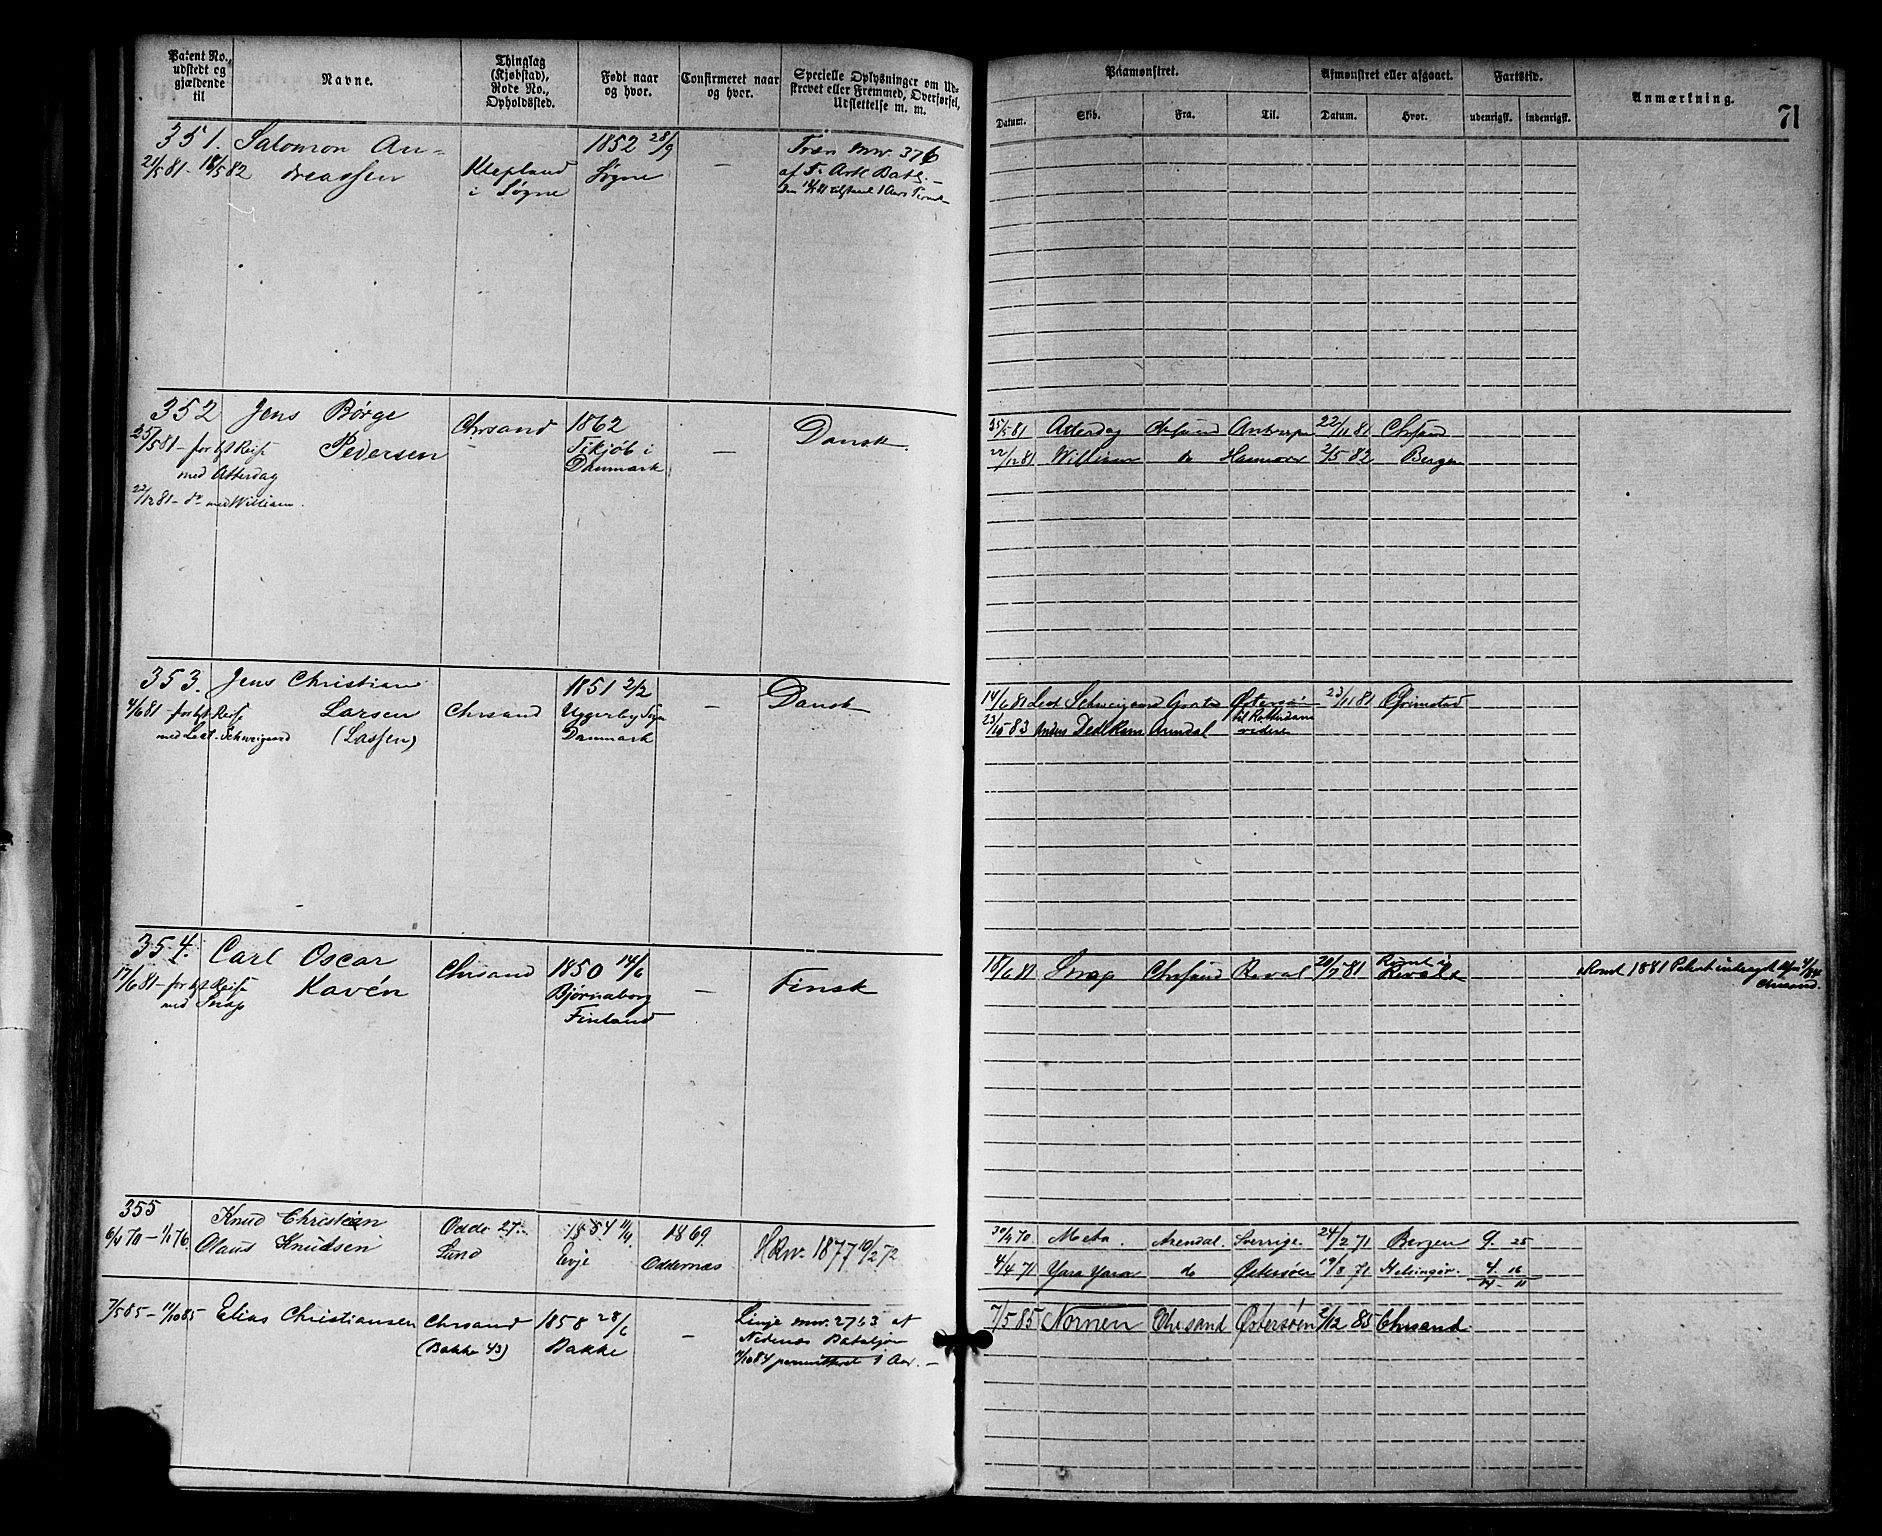 Patent No., udstedt og gjældende til
Navne.
Thinglag (Kjøbstad), Rode No., Opholdssted.
Født naar og hvor.
Confirmeret naar og hvor.
Specielle Oplysninger om Udskrevet eller Fremmed, Overførsel, Udslettelse m. m.
Paamønstret.
Afmønstret eller afgaaet.
Fartstid.
Anmærkning.
71
Datum.
Skib.
Fra.
Til.
Datum.
Hvor.
udenrigsk.
indenrigsk.
351. Salomon An-
dreassen
21/5 81 - 18/5 82
Klepland
i Søgne
1852 28/9
Søgne
—
Træn nr. 376
af 5. Artl. Batl. —
352 Jens Børge
Pedersen
25/5 81 - for Reise
med Atterdag
22/12 81 - do med William.
Chrsand
1862
Tikjøb i
Danmark
—
Dansk
25/5 81 Atterdag Chrsand Antwerpn 22/11 81 Chrsand
22/12 81 William do Hannover 2/5 82 Bergen
353. Jens Christian
Larsen
(Lassen)
4/6 81 - for Reise
med Lect. Schweigaard
Chrsand
1851 2/2
Uggerby Sogn
Danmark
—
Dansk
14/6 81 Lect Schweigaard Grasta Østersøn 23/11 81 Grimstad
23/10 83 Dedekam Arendal til Rotterdam
videre
354. Carl Oscar
Kavén
17/6 81 - for Reise
med Snap
Chrsand
1850 14/6
Bjørnaborg
Finland
—
Finsk
18/6 81 Snap Chrsand Reval 20/7 81 Rømt i
Revalt
Rømt 1881 Patent
Chrsand.
355
6/4 70 - 1/1 76.
Knud Christian
Olaus Knudsen
Odde 27.
Lund
1854 11/4
Evje
1869
Oddernes
HRw. 1877 10/2 72
30/4 70 Meta. Arendal. Sverrige. 24/2 71 Bergen 9. 25
4/4 71 Yara Yara do Østersøen 19/8 71 Helsingør. 4. 16
14 - 11
7/5 85 - 14/10 85 Elias Christiansen
Chrsand
(Bakke 43)
1858 28/6
Bakke
—
Linje nr. 2763 af
Nedenæs Bataljon
11/10 84 permitteret 1 Aar. —
7/5 85 Nornen Chrsand Østersøen 2/12 85 Chrsand